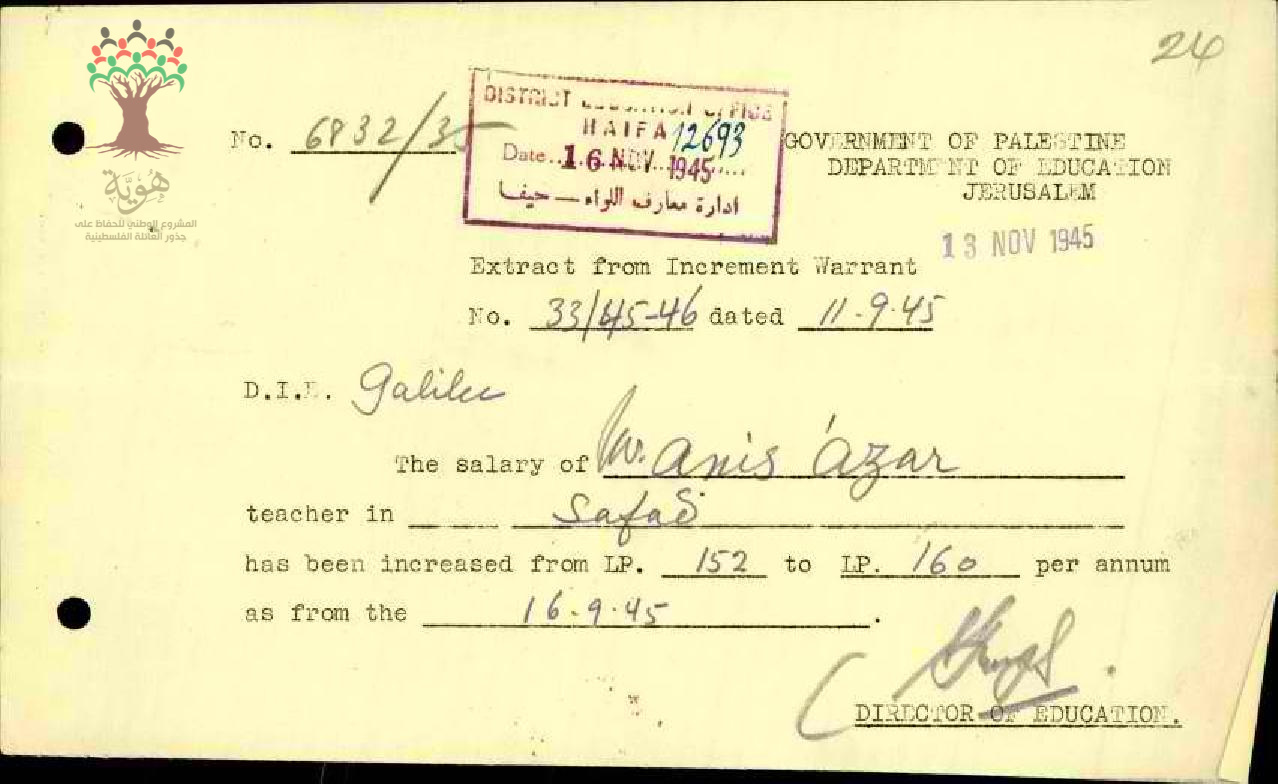 26
هُوِيَّة
المشروع الوطني للحفاظ على
جذور العائلة الفلسطينية
No. 6832/35
DISTRICT EDUCATION OFFICE
HAIFA 12693
Date 16 NOV 1945
ادارة معارف اللواء — حيفا
GOVERNMENT OF PALESTINE
DEPARTMENT OF EDUCATION
JERUSALEM
13 NOV 1945
Extract from Increment Warrant
No. 33/45-46 dated 11-9-45
D.I.E. Galilee
The salary of Mr. Anis 'Azar
teacher in Safad
has been increased from LP. 152 to LP. 160 per annum
as from the 16-9-45.
DIRECTOR OF EDUCATION.